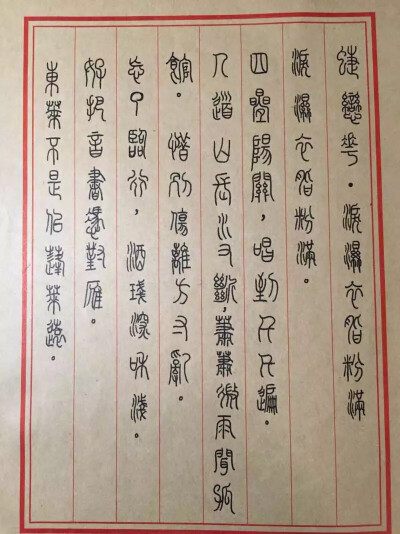 蝶戀華·淚濕衣脂粉滿
淚濕衣脂粉滿。
四疊陽關,唱到千千遍。
人道山長水又斷,蕭蕭微雨聞孤
館。惜別傷離方寸亂。
忘了臨行,酒琖深和淺。
好把音書雁。
東萊不是似蓬萊遠。